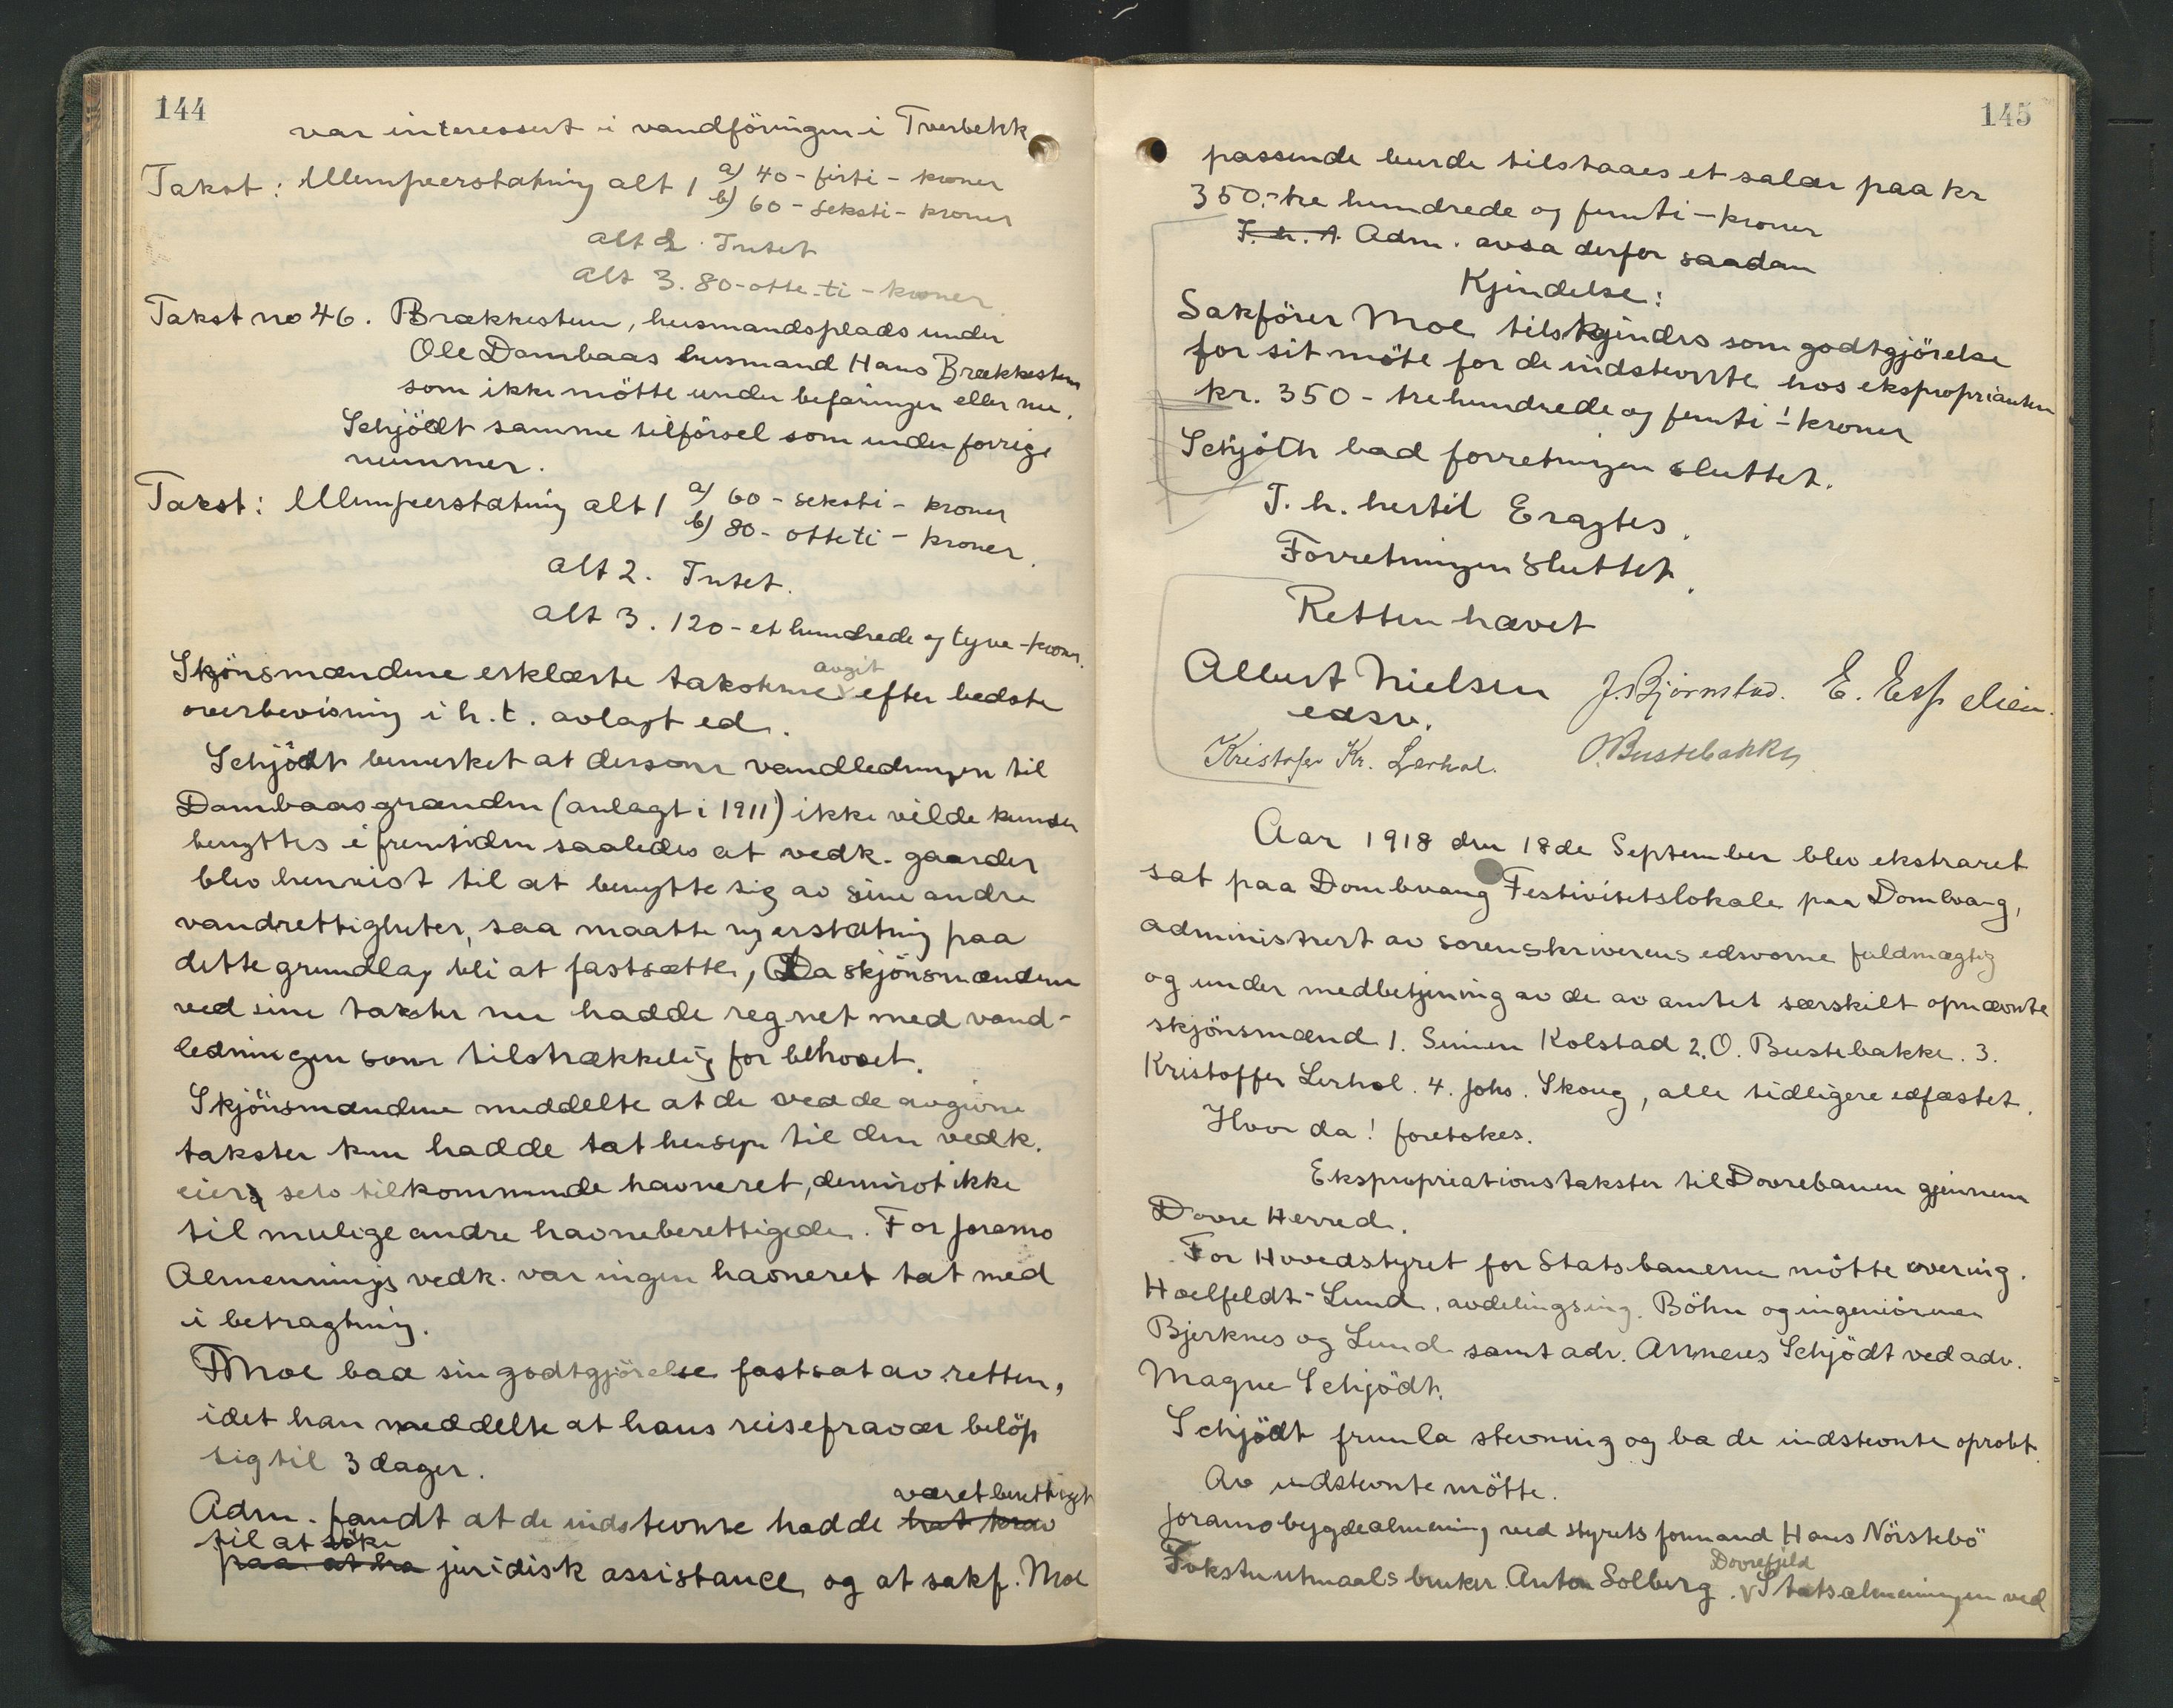 144
var interessert i vandföringen i Tverbekk
Takst: Ulempeerstatning alt 1 a) 40 - firti - kroner
b) 60 - seksti - kroner
alt 2. Intet
alt 3. 80 - otte-ti - kroner
Takst no 46. Brækkestuen, husmandsplads under
Ole Dombaas husmand Hans Brækkestuen
som ikke mötte under befaringen eller nu.
Schjödt samme tilförsel som under forrige
nummer.
Takst: Ulempeerstatning alt 1 a) 60 - seksti - kroner
b) 80 - otteti - kroner.
alt 2. Intet.
alt 3. 120 - et hundrede og tyve - kroner.
Skjönsmændene erklærte takstene avgit efter bedste
overbevisning i h. t. avlagt ed.
Schjödt bemerket at dersom vandledningen til
Dombaasgrænden (anlagt i 1911) ikke vilde kunde
benyttes i fremtiden saaledes at vedk. gaarder
blev henvist til at benytte sig av sine andre
vandrettigheter, saa maatte ny erstatning paa
dette grundlag bli at fastsætte, Da skjönsmændene
ved sine takster nu hadde regnet med vand-
ledningen som tilstrækkelig for behovet.
Skjönsmændene meddelte at de ved de avgivne
takster kun hadde tat hensyn til den vedk.
eiers selv tilkommende havneret, derimot ikke
til mulige andre havneberettigede. For Joramo
Almennings vedk. var ingen havneret tat med
i betragtning.
Moe bad sin godtgjörelse fastsat av retten,
idet han meddelte at hans reisefravær belöp
sig til 3 dager.
Adm. fandt at de indstevnte hadde hat krav været berettiget
paa at ha til at söke juridisk assistance og at sakf. Moe
145
passende burde tilstaaes et salær paa kr
350.- tre hundrede og femti - kroner
T. h. t. Adm. avsa derfor saadan
Kjendelse:
Sakförer Moe tilkjendes som godtgjörelse
for sit möte for de indstevnte hos eksproprianten
kr. 350 - trehundrede og femti - kroner
Schjöth bad forretningen sluttet.
T. h. hertil Eragtes.
Forretningen sluttet.
Retten hævet
Albert Nielsen J. Bjørnstad. E. Espelien.
edsv.
Kristofer Kr. Lerhol. O. Bustebakke
Aar 1918 den 18de September blev ekstraret
sat paa Dombvang Festivitetslokale paa Dombvang,
administrert av sorenskriverens edsvorne fuldmægtig
og under medbetjening av de av amtet særskilt opnævnte
skjönsmænd 1. Simen Kolstad 2. O. Bustebakke. 3.
Kristoffer Lerhol. 4. Johs. Skoug, alle tidligere edfæstet.
Hvor da! foretokes.
Ekspropriationstakster til Dovrebanen gjennem
Dovre Herred.
For Hovedstyret for Statsbanerne mötte overing.
Hoelfeldt-Lund, avdelingsing. Böhn og ingeniörene
Bjerknes og Lund samt adv. Annæus Schjödt ved adv.
Magne Schjödt.
Schjödt fremla stevning og ba de indstevnte oprobt.
Av indstevnte mötte.
Joramo bygdealmening ved styrets formand Hans Nörstebö
Fokstuutmaals bruker Anton Solberg. Dovrefjeld Statsalmeningen ved